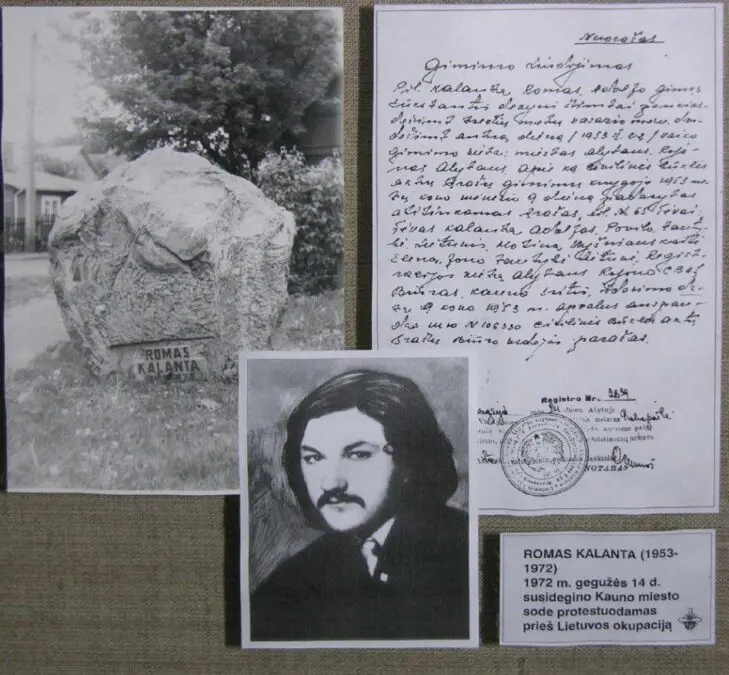 ROMAS
KALANTA
Nuorašas
Gimimo liudijimas
Pil. Kalanta, Romas, Adolfo gimęs
tūkstantis devyni šimtai penkias-
dešimt trečių metų vasario mėn. dvi-
dešimt antrą dieną / 1953
gimimo vieta: miestas Alytus, Rajo-
nas Alytaus, apie ką civilinės būklės
aktų įrašų gimimų knygoje 1953 me-
tų kovo mėnesio 9 dieną padarytas
atitinkamas įrašas, Nr. 65 Tėvai:
Tėvas Kalanta Adolfas, Povilo, tauty-
bė lietuvis, Motina,
Elena, Jono tautybė lietuvė, Regist-
racijos vieta Alytaus Rajono CBAĮ
Biuras, Kauno sritis,
9 kovo 1953 m. apvalus antspau-
das civilinės būklės aktų
įrašų Biuro vedėjos parašas.
Registro Nr. 2839
NOTARAS
ROMAS KALANTA (1953-
1972)
1972 m. gegužės 14 d.
susidegino Kauno miesto
sode protestuodamas
prieš Lietuvos okupaciją